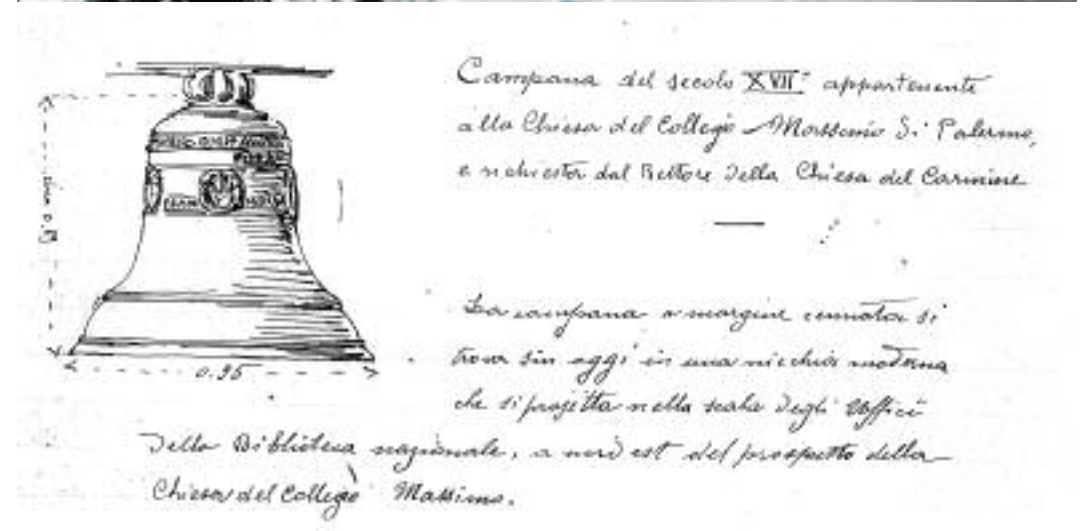 Campana del secolo XVII° appartenente
alla Chiesa del Collegio Massimo di Palermo,
e richiesta dal Rettore della Chiesa del Carmine
La campana a margine cennata si
trova sin oggi in una nicchia moderna
che si projetta nella scala degli Uffici
della Biblioteca nazionale, a nord est del prospetto della
Chiesa del Collegio Massimo.
0.95